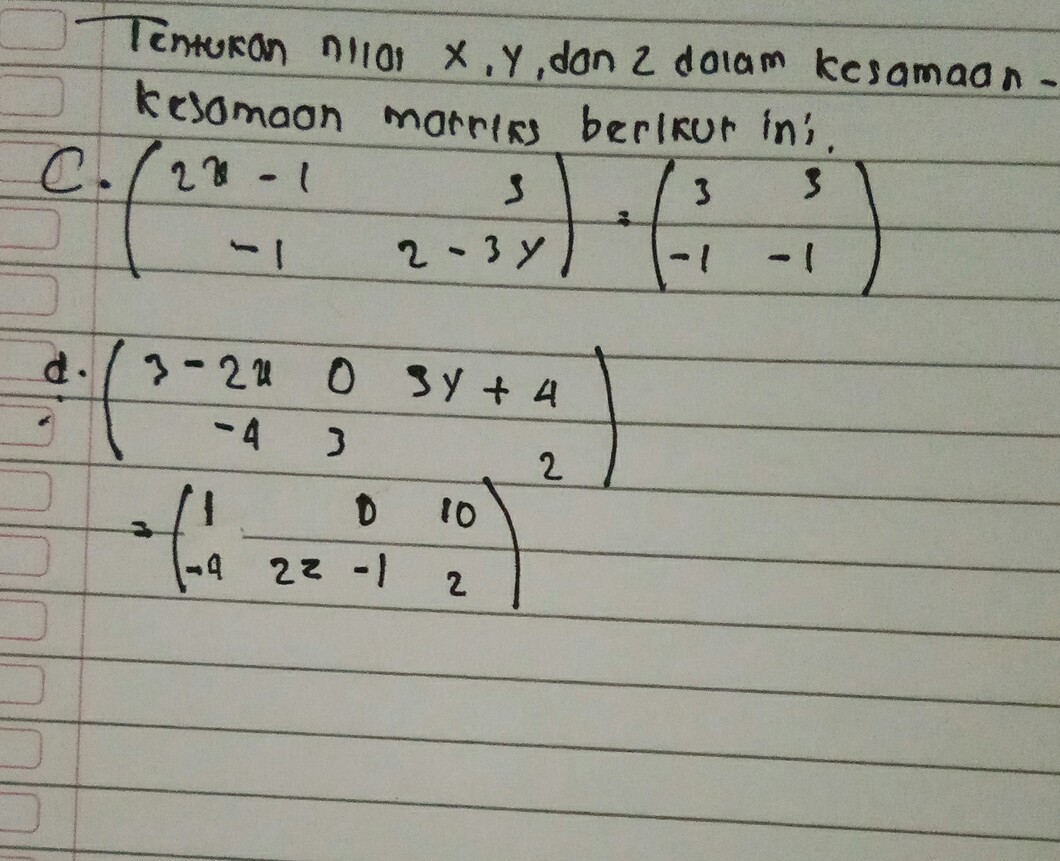 Tentukan nilai x, y, dan z dalam kesamaan -
kesamaan matriks berikut ini.
C. ( 2x - 1 3 ) = ( 3 3 )
( -1 2 - 3y ) ( -1 -1 )
d. ( 3 - 2x 0 3y + 4 )
( -4 3 2 )
= ( 1 0 10 )
( -4 2z - 1 2 )